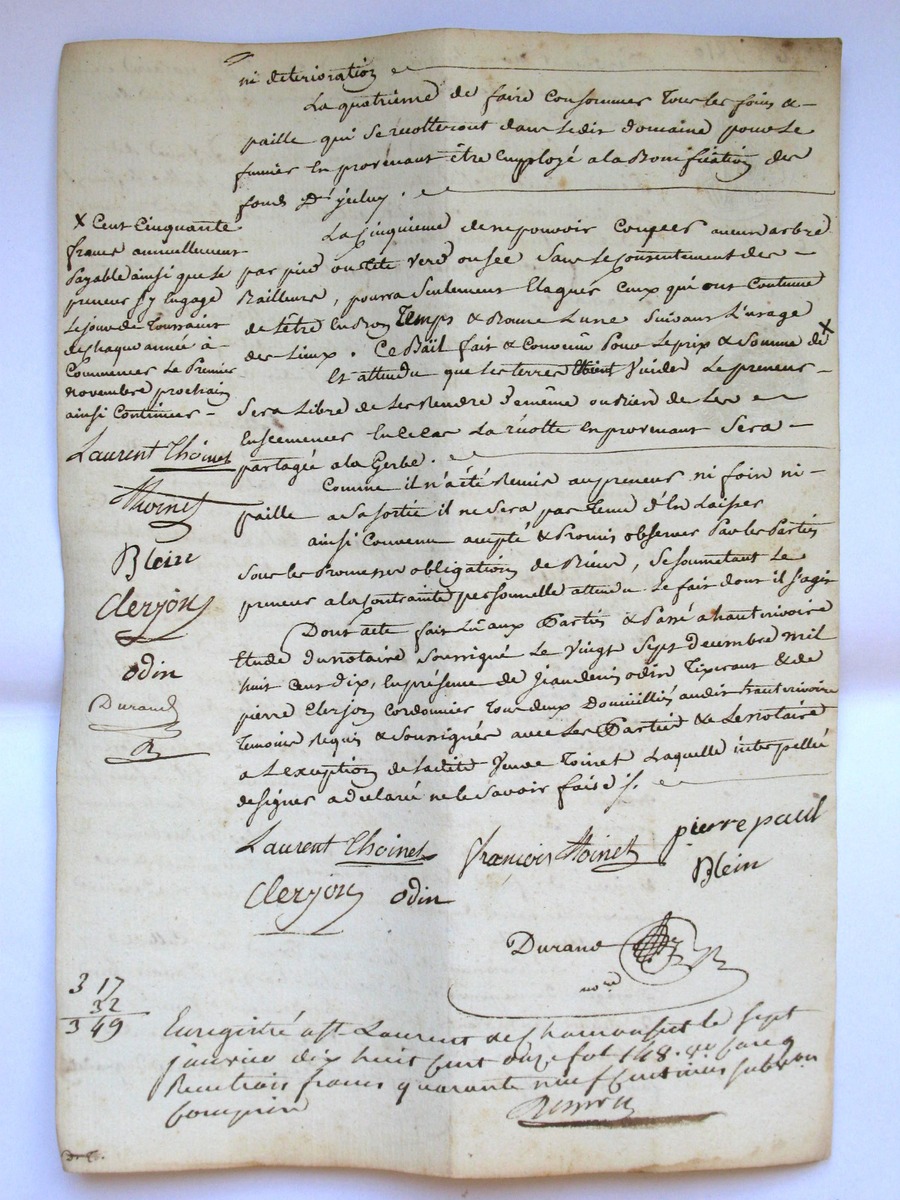 ni déterioration
La quatrieme de faire Consommer tous les foins &
paille qui se recolteront dans ledit domaine pour le
fumier en provenant être employé a la Bonification des
fonds d'yceluy.
La Cinquieme de ne pouvoir Couper aucun arbre
par pied ou tête verd ou sec Sans le Consentement des
Bailleurs, pourra Seulement Elaguer Ceux qui ont Coutume
de l'être en Bon Temps & Bonne Lune Suivant L'usage
des Lieux. Ce Bail fait & Convenu Pour le prix & Somme de X
Et attendu que les terres Vuides Le preneur
Sera Libre de les Rendre de même ou Bien de les
Ensemencer En ce Cas La récolte en provenant Sera
partagée a la Gerbe.
Comme il n'a été Remis au preneur ni foin ni
paille a sa sortie il ne Sera pas tenu d'en Laisser
ainsi Convenu accepté & Promis observer Par les Parties
Sous les Promesses obligations de Biens, Se soumetant Le
preneur a la Contrainte personnelle attendu Le fait dont il s'agit
Dont acte fait Lû aux Parties & Passé a hauterivoire
Etude du notaire Soussigné Le Vingt Sept decembre mil
huit Cent dix, En présence de Jean denis odin Tixerant & de
pierre Clerjon Cordonnier Tous deux Domiciliés audit hauterivoire
Temoins Requis & Soussignés avec Les Parties & Le notaire
a L'exception de ladite Veuve Toinet Laquelle interpellée
de signer a declaré ne le Savoir faire ./.
X Cent Cinquante
francs annuellement
Payable ainsi que le
preneur s'y Engage
Le jour de Toussaint
de chaque année à
Commencer Le Premier
novembre prochain
ainsi Continuer
Laurent Thoinet
Thoinet
Blein
Clerjon
odin
Durand
Laurent Thoinet
François Thoinet
pierre paul
Blein
Clerjon odin
Durand
no.re
3 17
32
3 49
Enregistré a St Laurent de Chamousset le sept
janvier dix huit Cent onze fol 148.
Recu trois francs quarante neuf Centimes subvon
Comprise